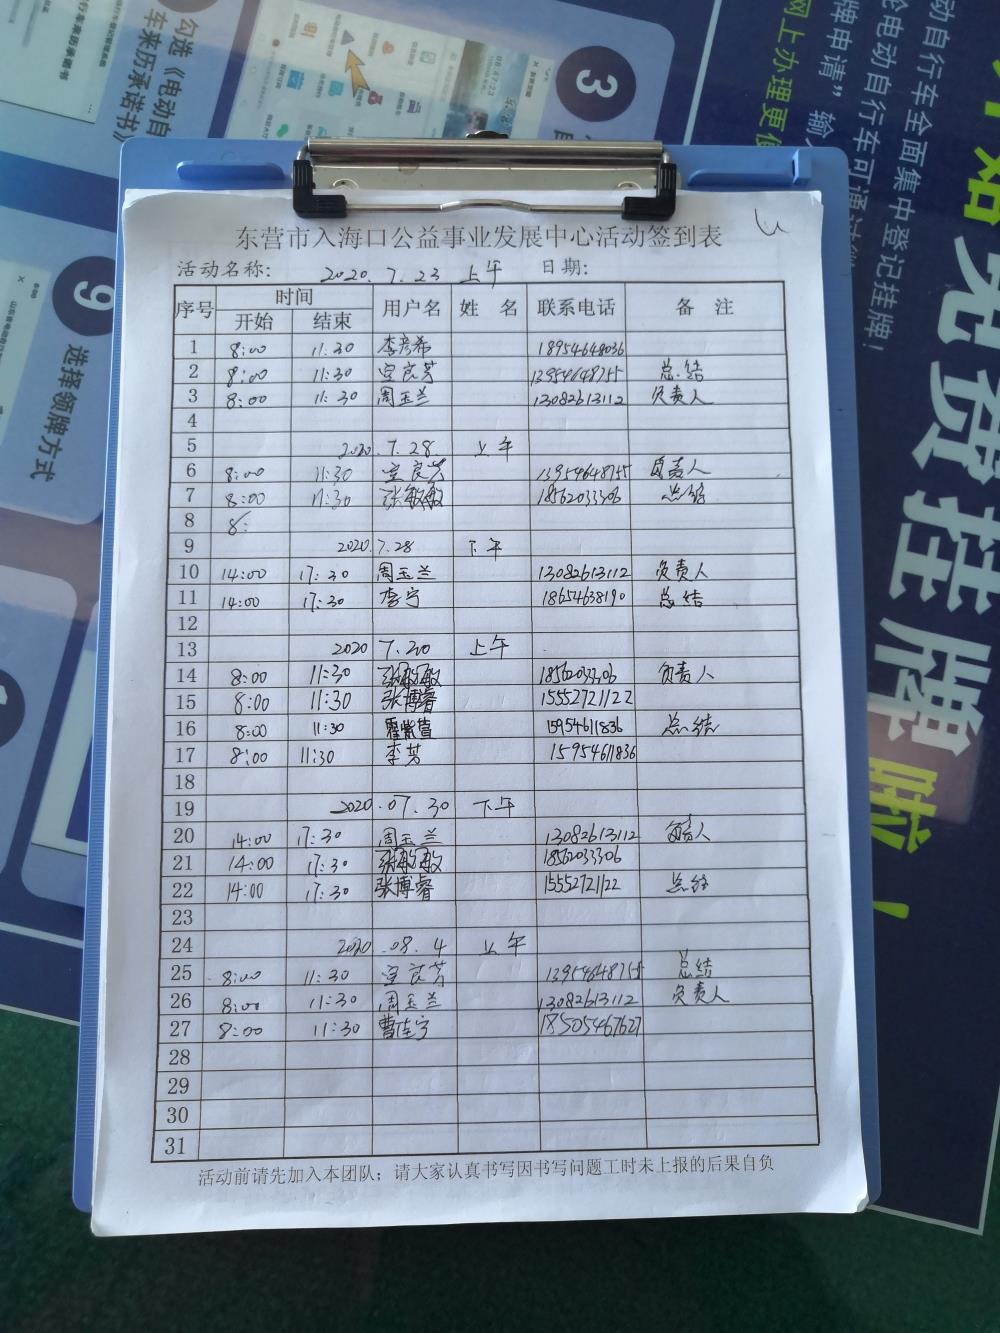 3
勾选《电动自
年来历承诺书》
9
选择领牌方式
动自行车全面集中登记挂牌!
网上办理更
免费挂牌啦!
东营市入海口公益事业发展中心活动签到表
活动名称: 2020.7.23 上午 日期:
序号 时间 用户名 姓 名 联系电话 备 注
开始 结束
1 8:00 11:30 李彦希 18954648036
2 8:00 11:30 宜良芳 13954648755 总结
3 8:00 11:30 周玉兰 13082613112 负责人
4
5 2020.7.28 上午
6 8:00 11:30 宜良芳 13954648755 负责人
7 8:00 11:30 张敏敏 18562033306 总结
8 8:
9 2020.7.28 下午
10 14:00 17:30 周玉兰 13082613112 负责人
11 14:00 17:30 李宁 18654638190 总结
12
13 2020 7.30 上午
14 8:00 11:30 张敏敏 18562033306 负责人
15 8:00 11:30 张博睿 15552721122
16 8:00 11:30 15954611836 总结
17 8:00 11:30 李芳 15954611836
18
19 2020.07.30 下午
20 14:00 17:30 周玉兰 13082613112 负责人
21 14:00 17:30 张敏敏 18562033306
22 14:00 17:30 张博睿 15552721122 总结
23
24 2020.08.4 上午
25 8:00 11:30 宜良芳 13954648755 总结
26 8:00 11:30 周玉兰 13082613112 负责人
27 8:00 11:30 曹佳宁 18505467627
28
29
30
31
活动前请先加入本团队；请大家认真书写因书写问题工时未上报的后果自负